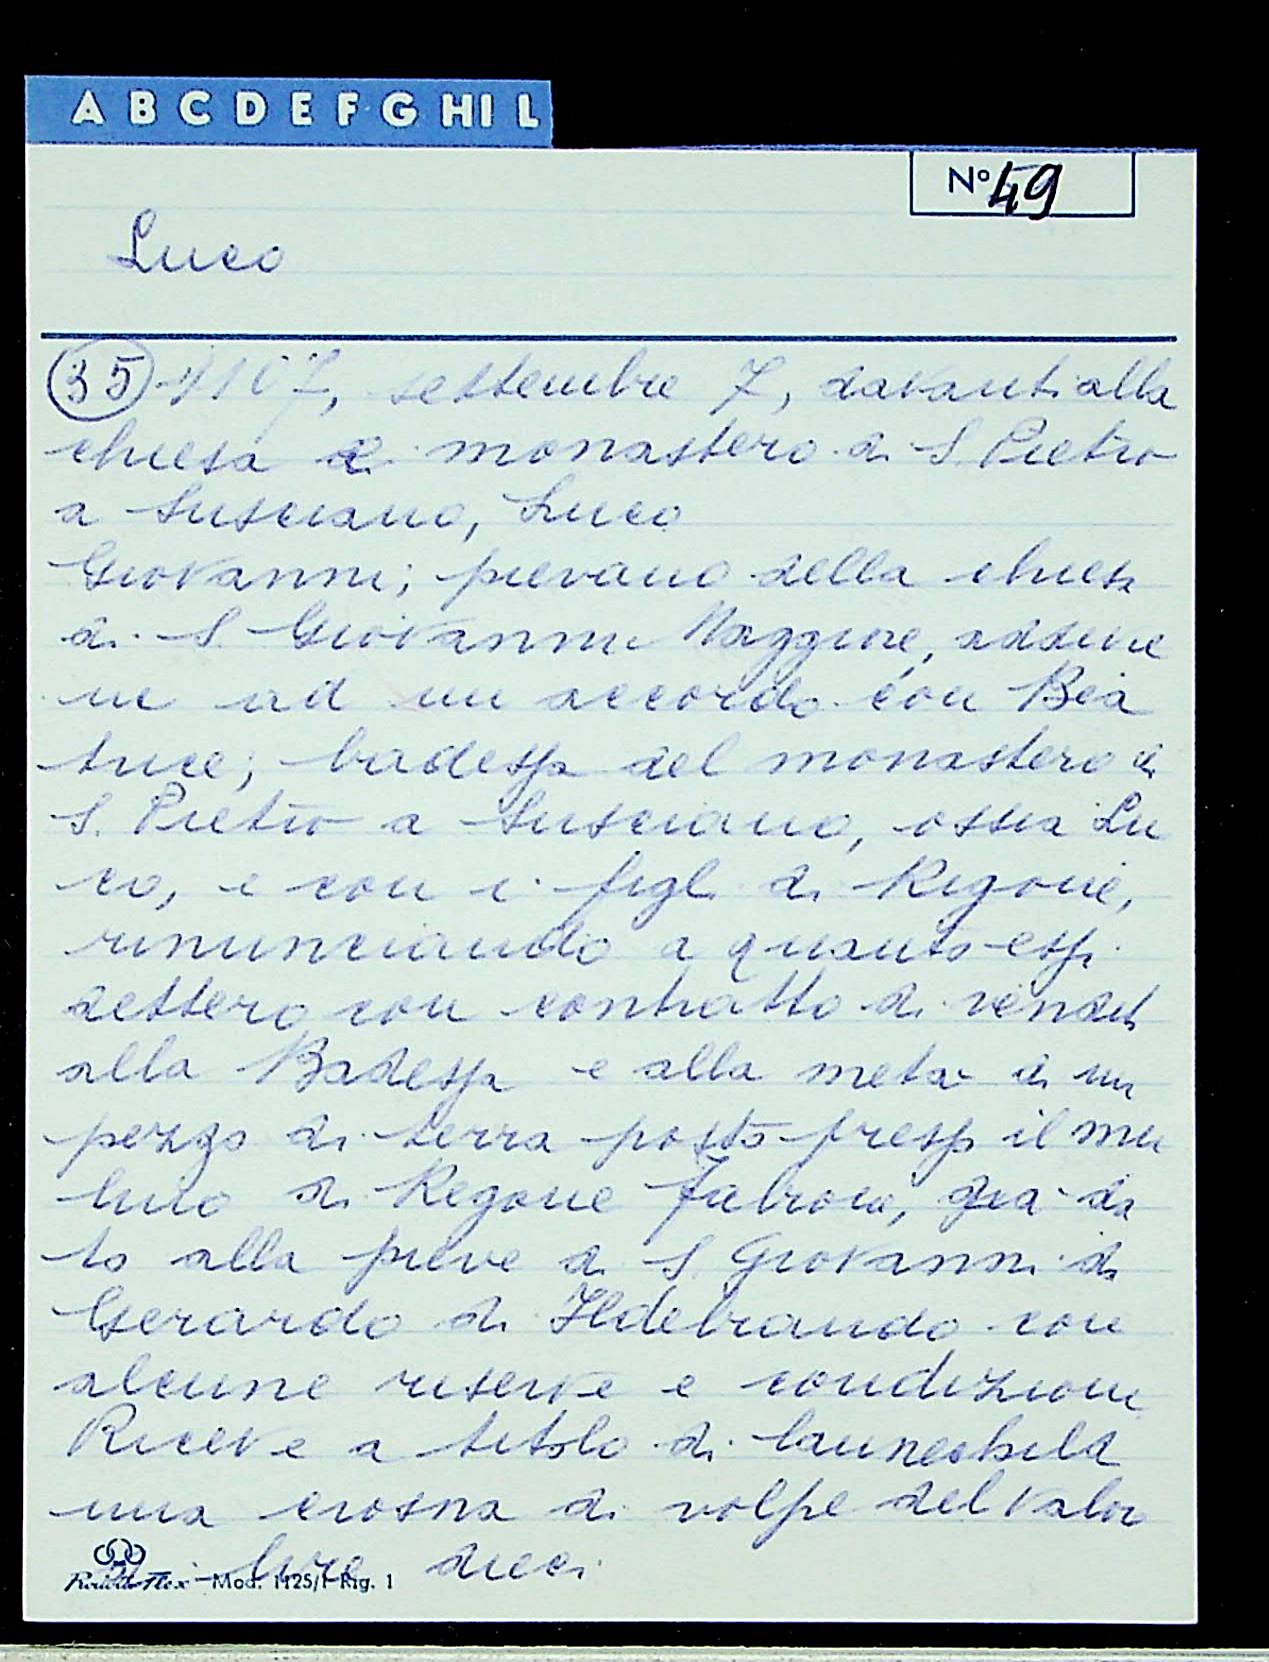 A B C D E F G HI L
N° 49
Luco
35 1107, settembre 7, davanti alla
chiesa e monastero di S. Pietro
a Lusciano, Luco
Giovanni, pievano della chiesa
di S. Giovanni Maggiore, addivie
ne ad un accordo con Bea
trice, badessa del monastero di
S. Pietro a Lusciano, ossia Lu
co, e con i figli di Rigone,
rinunciando a quanto essi
dettero con contratto di vendita
alla Badessa e alla metà di un
pezzo di terra posto presso il mu
lino di Rigone, già da
to alla pieve di S. Giovanni da
Gerardo di Ildebrando con
alcune riserve e condizioni
Riceve a titolo di launechild
una crosna di volpe del valor
di lire dieci
Mod. 1125/1 Rig. 1